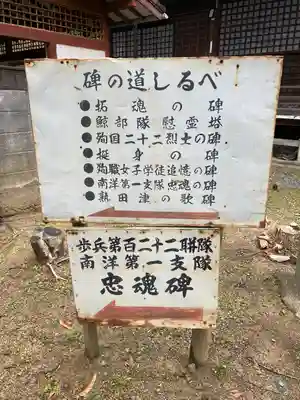 碑の道しるべ
●拓魂の碑
●鯨部隊慰霊塔
●殉国二十二烈士の碑
●挺身の碑
●殉職女子学徒追憶の碑
●南洋第一支隊忠魂の碑
●熟田津の歌碑
歩兵第百二十二聯隊
南洋第一支隊
忠魂碑